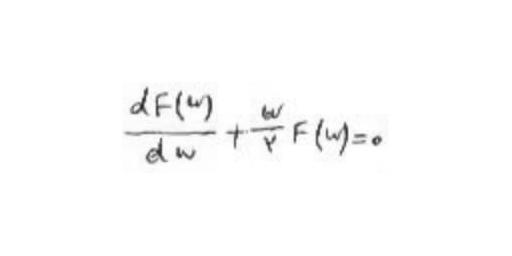 dF(w)/dw + w/۲ F(w)=۰